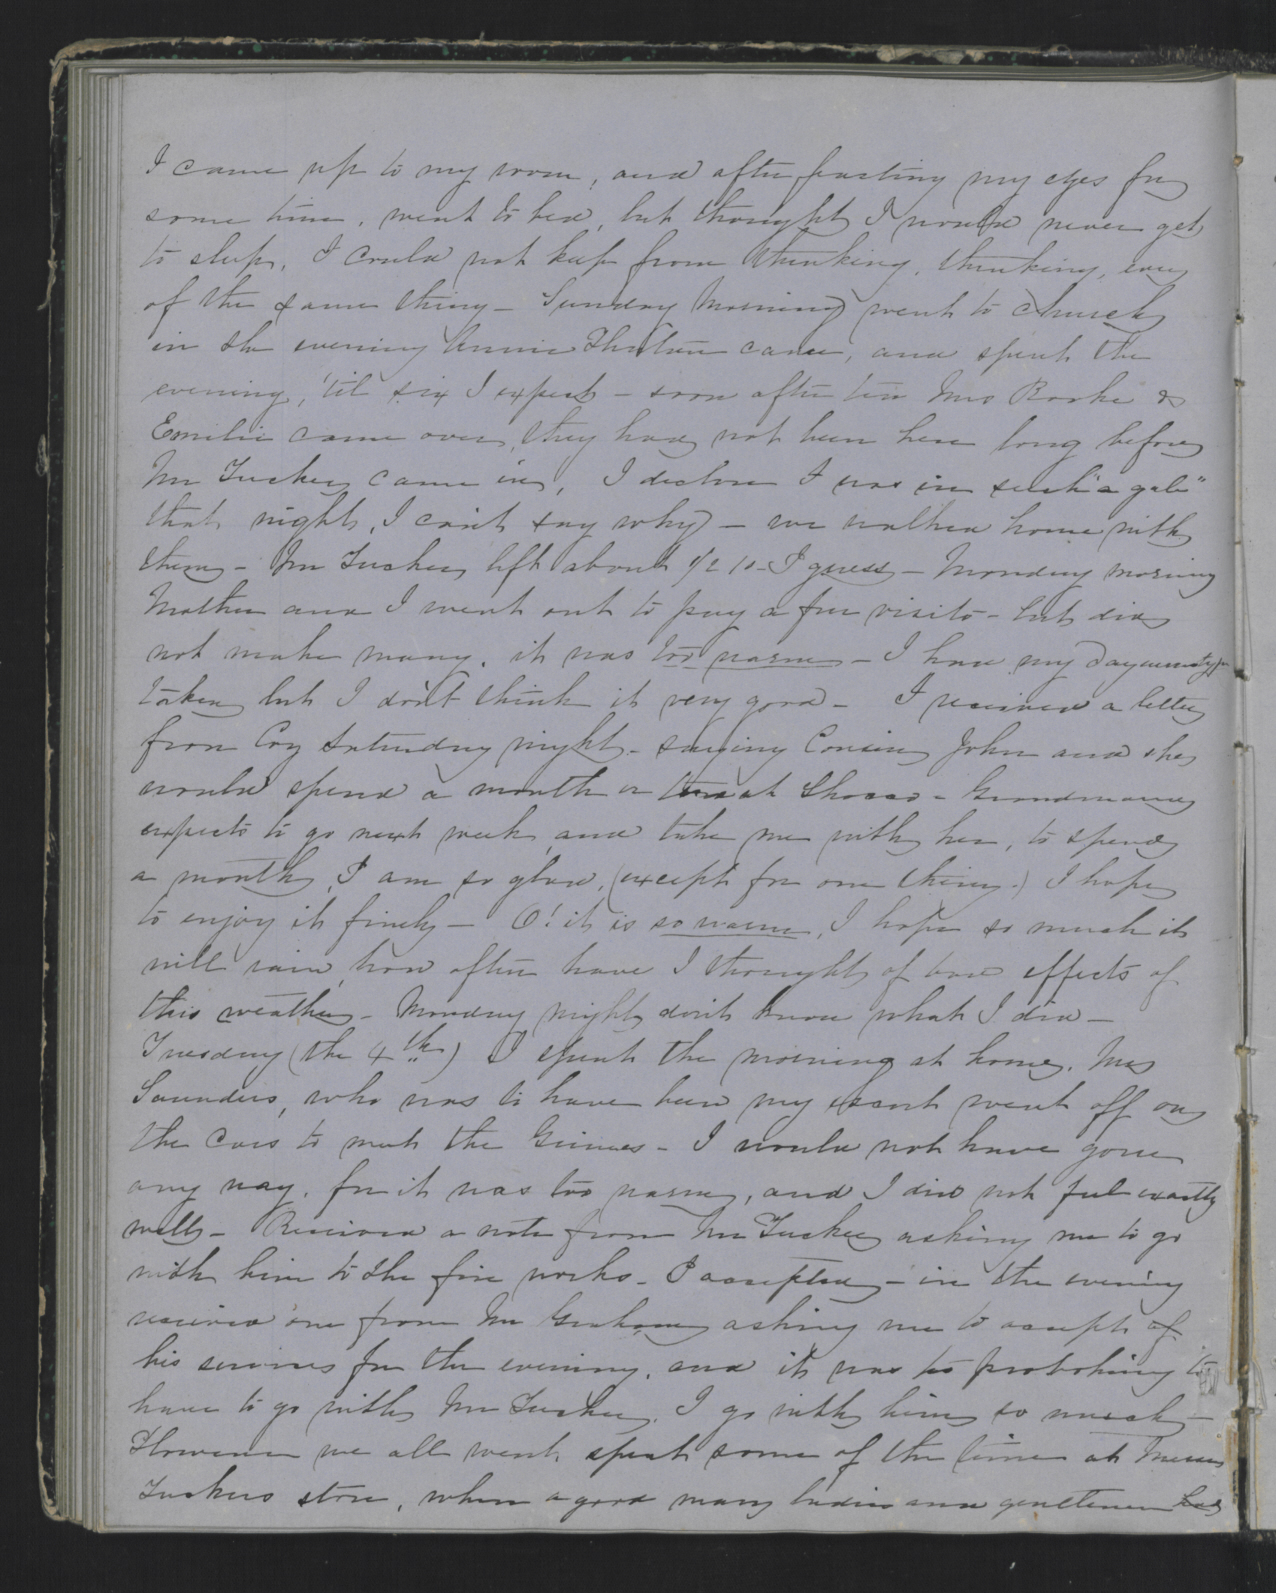 I came up to my room, and after feasting my eyes for
some time, went to bed, but thought I would never get
to sleep, I could not keep from thinking, thinking, even
of the same thing — Sunday Morning went to church
in the evening Annie came, and spent the
evening, 'til six I expect — soon after tea Mrs Rooke &
Emilie came over, they had not been here long before
Mr Tucker came in, I declare I was in such "a gale"
that night, I can't say why — we walked home with
them — Mr Tucker left about 1/2 10 — I guess — Monday morning
Mother and I went out to pay a few visits — but did
not make many, it was too warm — I had my
taken but I don't think it very good — I received a letter
from Coz Saturday night — saying Cousin John and she
would spend a month or two at Shocco — Grandmama
expects to go next week, and take me with her, to spend
a month, I am so glad, (except for one thing.) I hope
to enjoy it finely — O! it is so warm, I hope so much it
will rain, how often have I thought of bad effects of
this weather — Monday night, don't know what I did —
Tuesday (the 4th) I spent the morning at home. Mr
Saunders, who was to have been my escort went off on
the Cars to meet the — I would not have gone
any way, for it was too warm, and I did not feel exactly
well — Received a note from Mr Tucker asking me to go
with him to the fire works — I accepted — in the evening
received one from Mr Graham asking me to accept of
his services for the evening, and it was too provoking to
have to go with Mr Tucker, I go with him so much —
However we all went, spent some of the time at Messrs
Tuckers store, when a good many ladies and gentlemen had